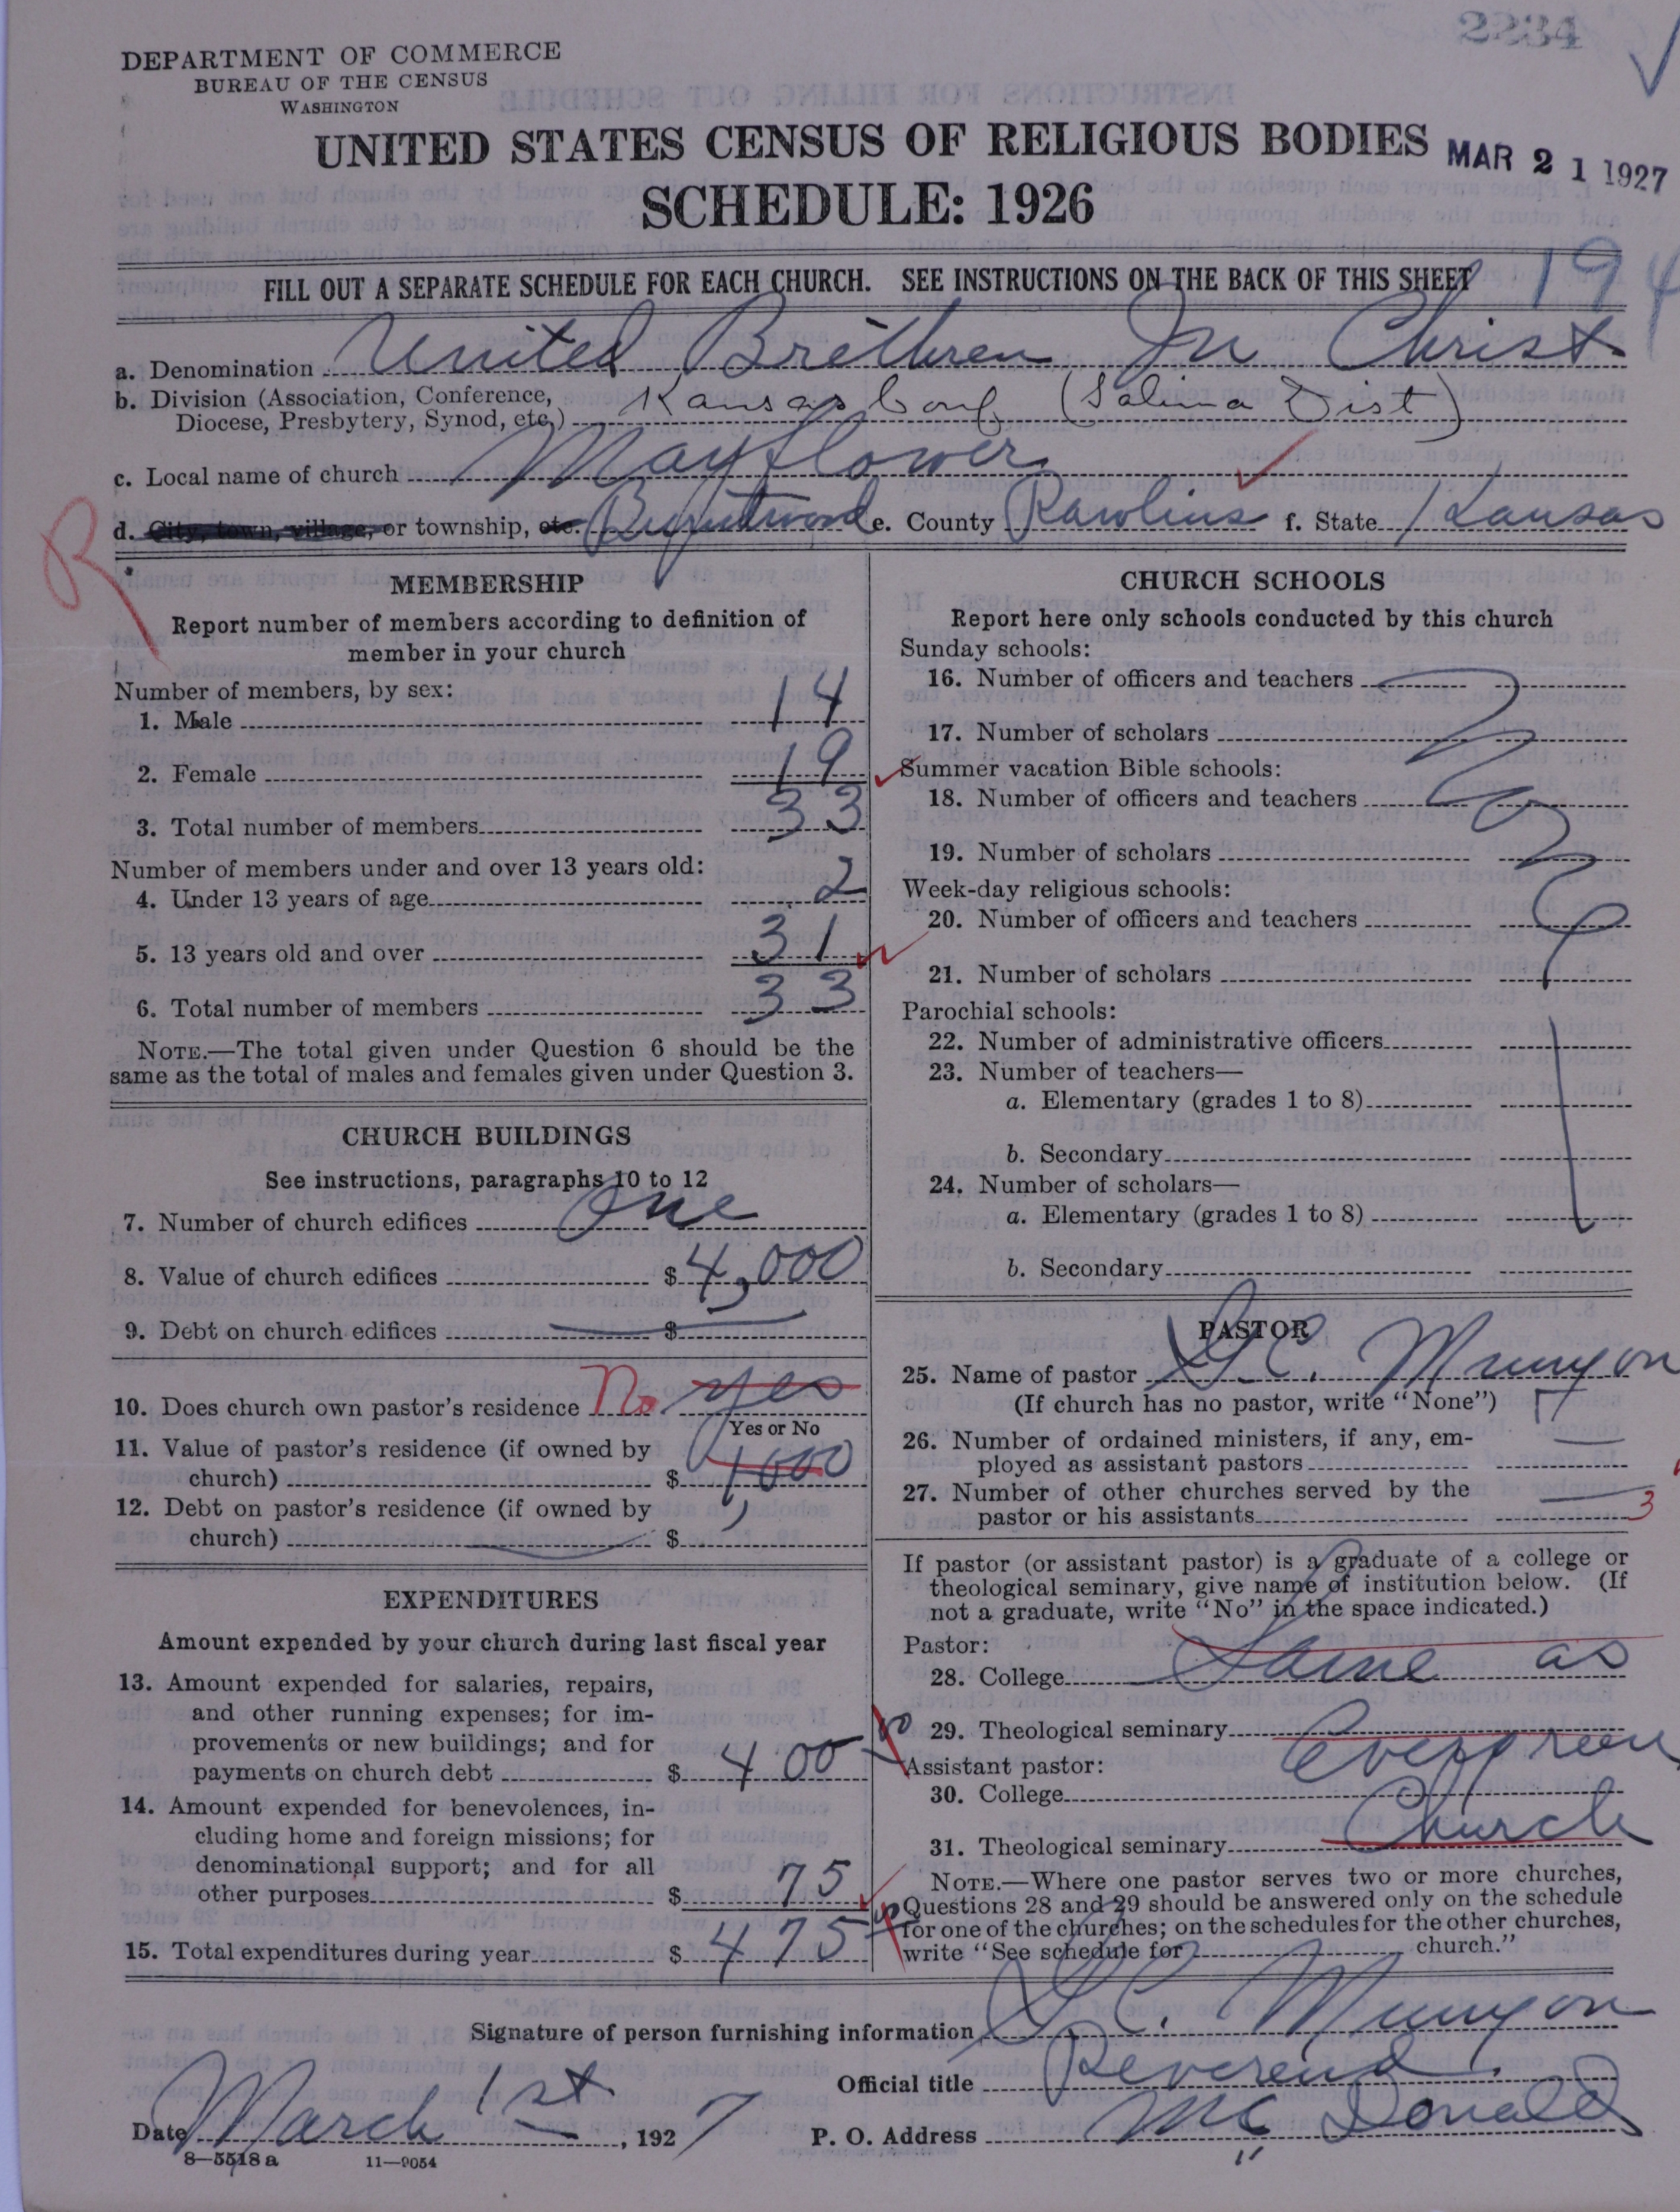 2234
DEPARTMENT OF COMMERCE
BUREAU OF THE CENSUS
WASHINGTON
UNITED STATES CENSUS OF RELIGIOUS BODIES
MAR 21 1927
SCHEDULE: 1926
FILL OUT A SEPARATE SCHEDULE FOR EACH CHURCH. SEE INSTRUCTIONS ON THE BACK OF THIS SHEET
194
a. Denomination United Brethren In Christ
b. Division (Association, Conference,
Diocese, Presbytery, Synod, etc.) Kansas Conf (Salina Dist)
c. Local name of church Mayflower
d. City, town, village, or township, etc. e. County Rawlins f. State Kansas
R
MEMBERSHIP
Report number of members according to definition of
member in your church
Number of members, by sex:
1. Male 14
2. Female 19
3. Total number of members 33
Number of members under and over 13 years old:
4. Under 13 years of age 2
5. 13 years old and over 31
6. Total number of members 33
NOTE.—The total given under Question 6 should be the
same as the total of males and females given under Question 3.
CHURCH BUILDINGS
See instructions, paragraphs 10 to 12
7. Number of church edifices One
8. Value of church edifices $ 4,000
9. Debt on church edifices $
10. Does church own pastor's residence No yes
Yes or No
11. Value of pastor's residence (if owned by
church) $ 1000
12. Debt on pastor's residence (if owned by
church) $
EXPENDITURES
Amount expended by your church during last fiscal year
13. Amount expended for salaries, repairs,
and other running expenses; for im-
provements or new buildings; and for
payments on church debt $ 400
14. Amount expended for benevolences, in-
cluding home and foreign missions; for
denominational support; and for all
other purposes $ 75
15. Total expenditures during year $ 475
CHURCH SCHOOLS
Report here only schools conducted by this church
Sunday schools:
16. Number of officers and teachers
17. Number of scholars
Summer vacation Bible schools:
18. Number of officers and teachers
19. Number of scholars
Week-day religious schools:
20. Number of officers and teachers
21. Number of scholars
Parochial schools:
22. Number of administrative officers
23. Number of teachers—
a. Elementary (grades 1 to 8)
b. Secondary
24. Number of scholars—
a. Elementary (grades 1 to 8)
b. Secondary
PASTOR
25. Name of pastor G.C. Munyon
(If church has no pastor, write "None")
26. Number of ordained ministers, if any, em-
ployed as assistant pastors
27. Number of other churches served by the
pastor or his assistants 3
If pastor (or assistant pastor) is a graduate of a college or
theological seminary, give name of institution below. (If
not a graduate, write "No" in the space indicated.)
Pastor:
28. College Same as
29. Theological seminary Evergreen
Assistant pastor:
30. College
31. Theological seminary Church
NOTE.—Where one pastor serves two or more churches,
Questions 28 and 29 should be answered only on the schedule
for one of the churches; on the schedules for the other churches,
write "See schedule for church."
Signature of person furnishing information G.C. Munyon
Official title Reverend
Date March 1st, 1927 P. O. Address McDonald
8—5518a 11—9054